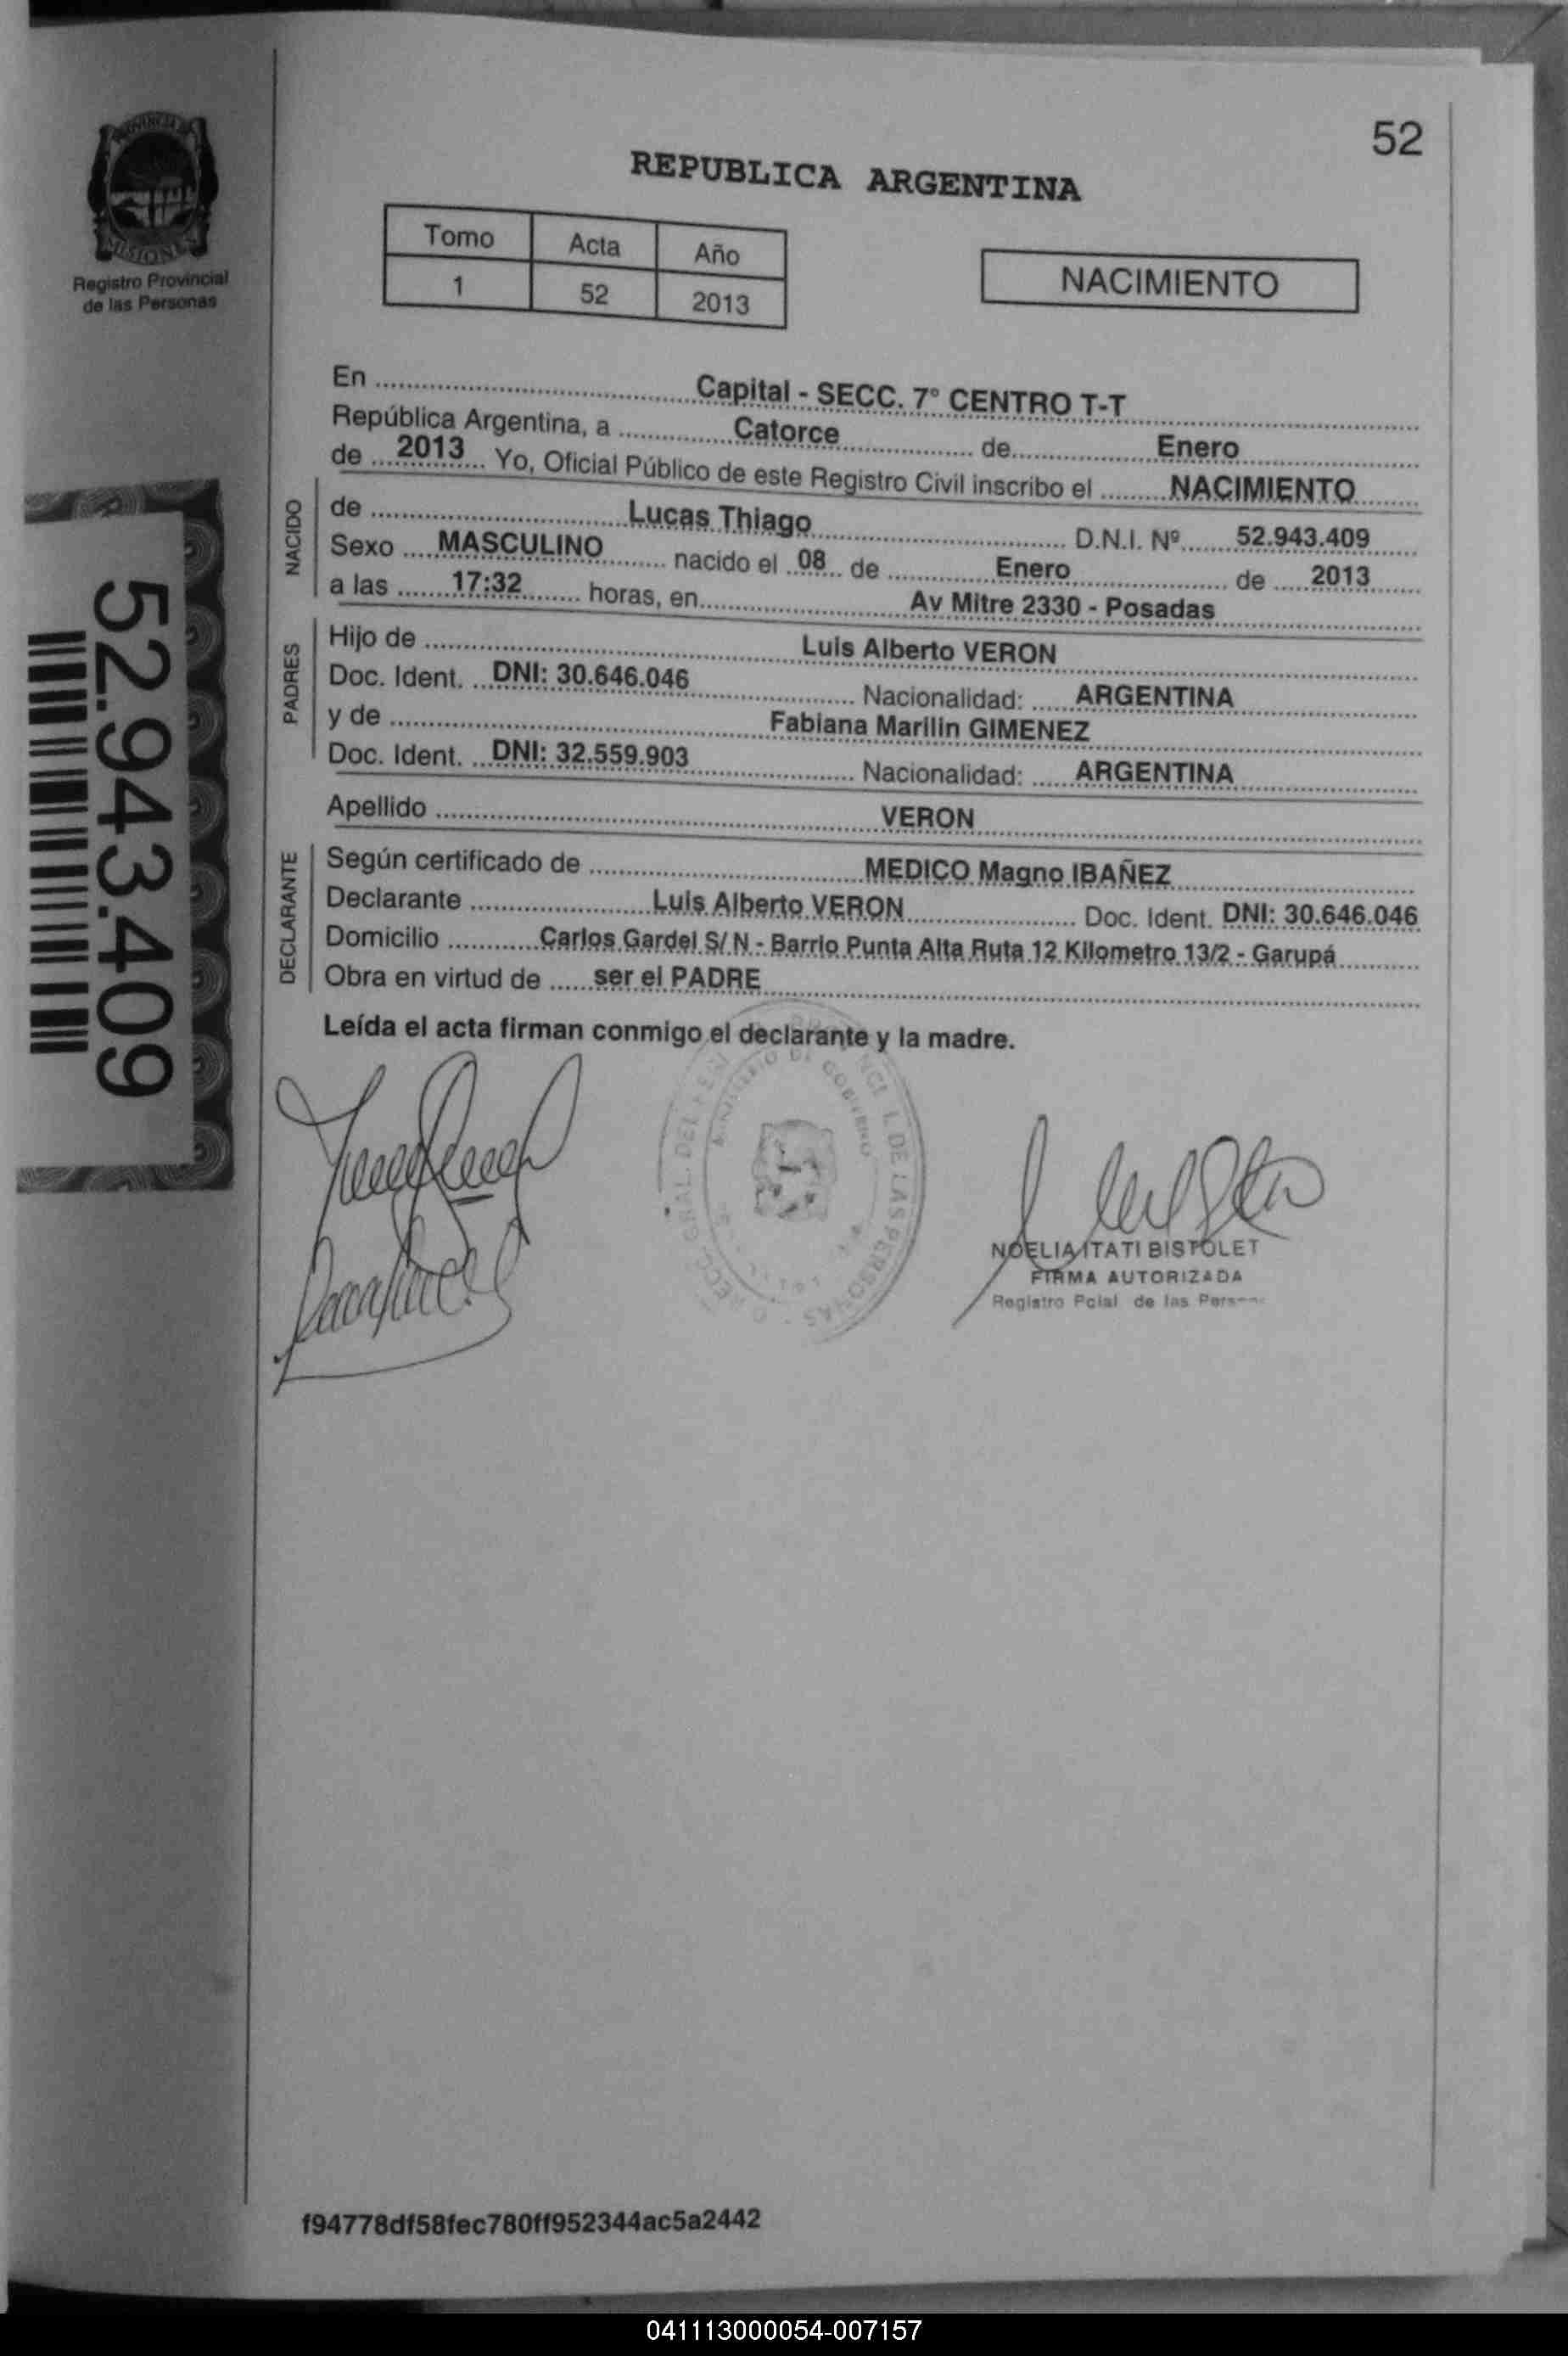 52
PROVINCIA DE
MISIONES
Registro Provincial
de las Personas
REPUBLICA ARGENTINA
Tomo Acta Año
1 52 2013
NACIMIENTO
En Capital - SECC. 7° CENTRO T-T
República Argentina, a Catorce de Enero
de 2013 Yo, Oficial Público de este Registro Civil inscribo el NACIMIENTO
NACIDO
de Lucas Thiago D.N.I. Nº 52.943.409
Sexo MASCULINO nacido el 08 de Enero de 2013
a las 17:32 horas, en Av Mitre 2330 - Posadas
PADRES
Hijo de Luis Alberto VERON
Doc. Ident. DNI: 30.646.046 Nacionalidad: ARGENTINA
y de Fabiana Marilin GIMENEZ
Doc. Ident. DNI: 32.559.903 Nacionalidad: ARGENTINA
Apellido VERON
DECLARANTE
Según certificado de MEDICO Magno IBAÑEZ
Declarante Luis Alberto VERON Doc. Ident. DNI: 30.646.046
Domicilio Carlos Gardel S/ N - Barrio Punta Alta Ruta 12 Kilometro 13/2 - Garupá
Obra en virtud de ser el PADRE
Leída el acta firman conmigo el declarante y la madre.
52.943.409
DE LAS PERSONAS
NOELIA ITATI BISTOLET
FIRMA AUTORIZADA
Registro Pcial de las
f94778df58fec780ff952344ac5a2442
041113000054-007157